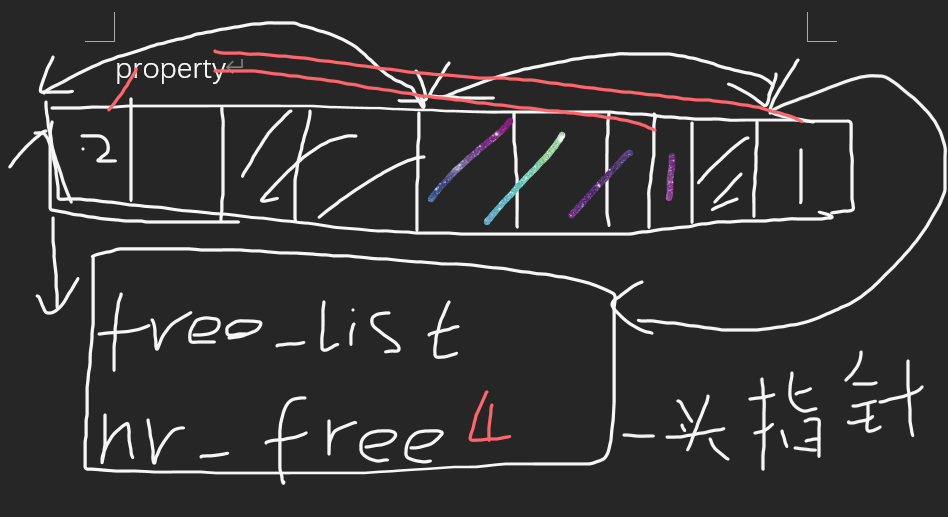 property
2 1
free_list
nr_free 4 一头指针